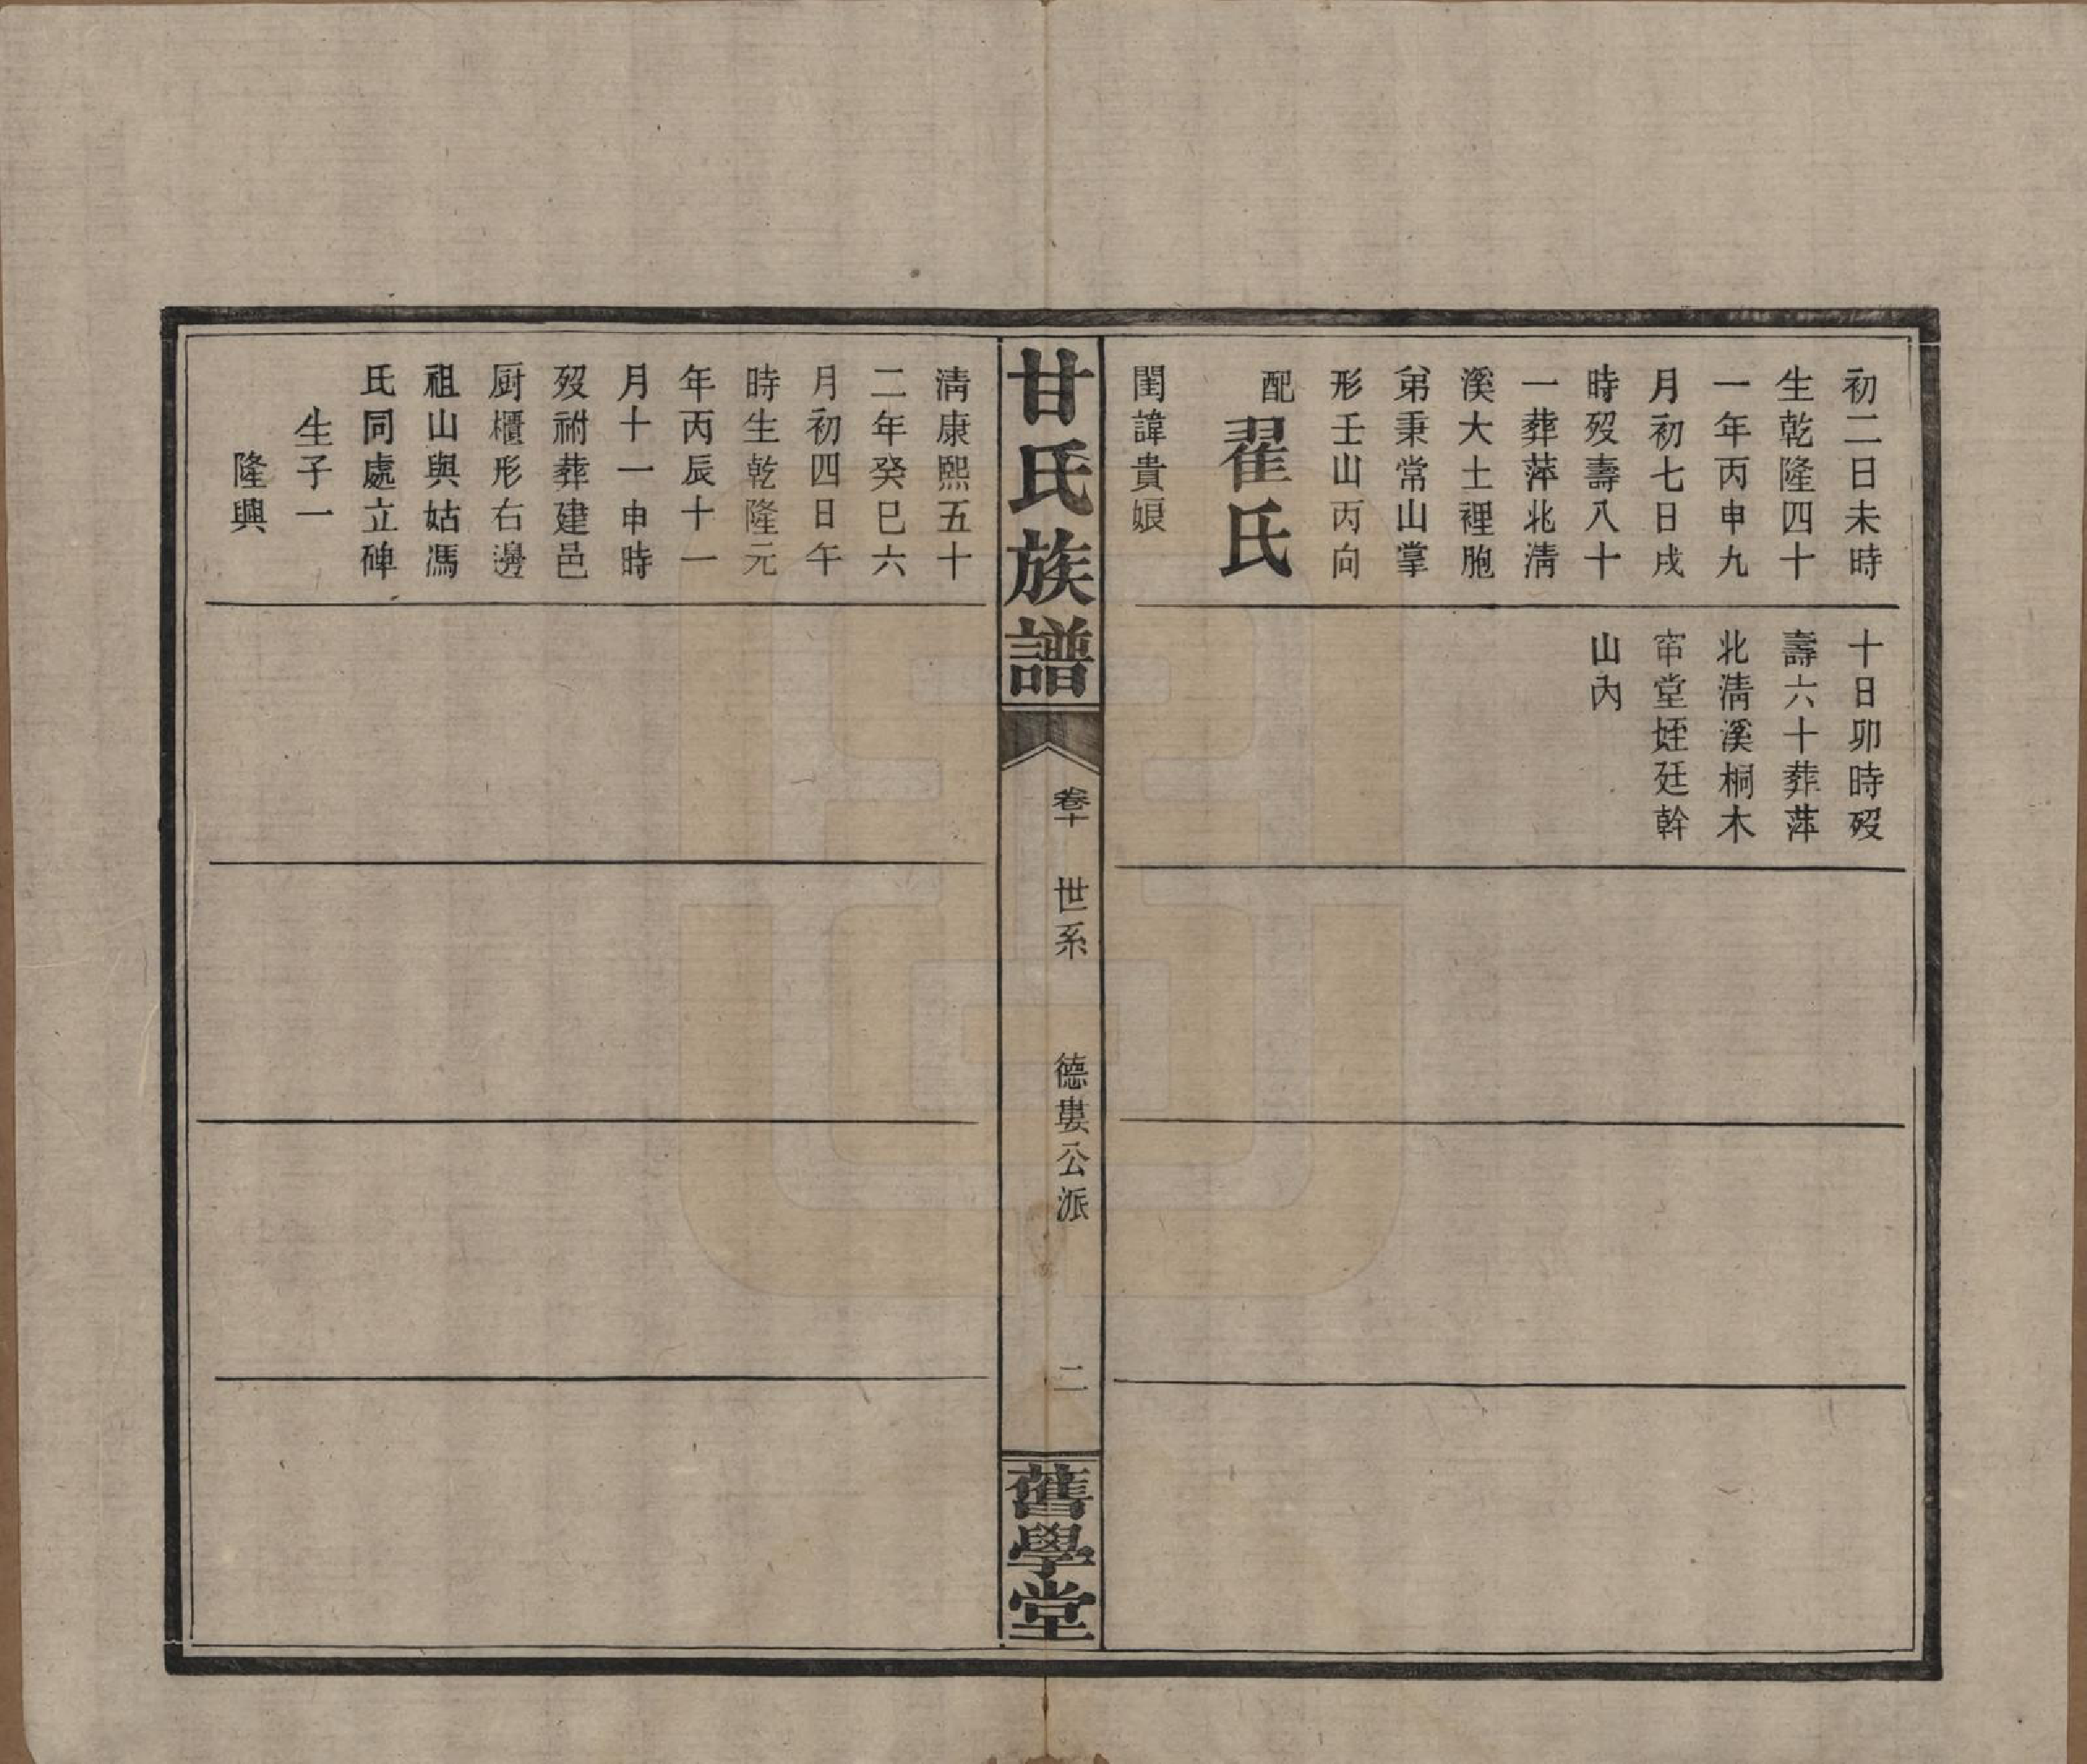 初二日未時
生乾隆四十
一年丙申九
月初七日戌
時歿壽八十
一葬萍北清
溪大土裡胞
弟秉常山掌
形壬山丙向
配
翟氏
閨諱貴娘
十日卯時歿
壽六十葬萍
北清溪桐木
窰堂姪廷幹
山內
甘氏族譜
卷十
世系
德婁公派
二
舊學堂
清康熙五十
二年癸巳六
月初四日午
時生乾隆元
年丙辰十一
月十一申時
歿祔葬建邑
厨櫃形右邊
祖山與姑馮
氏同處立碑
生子一
隆興